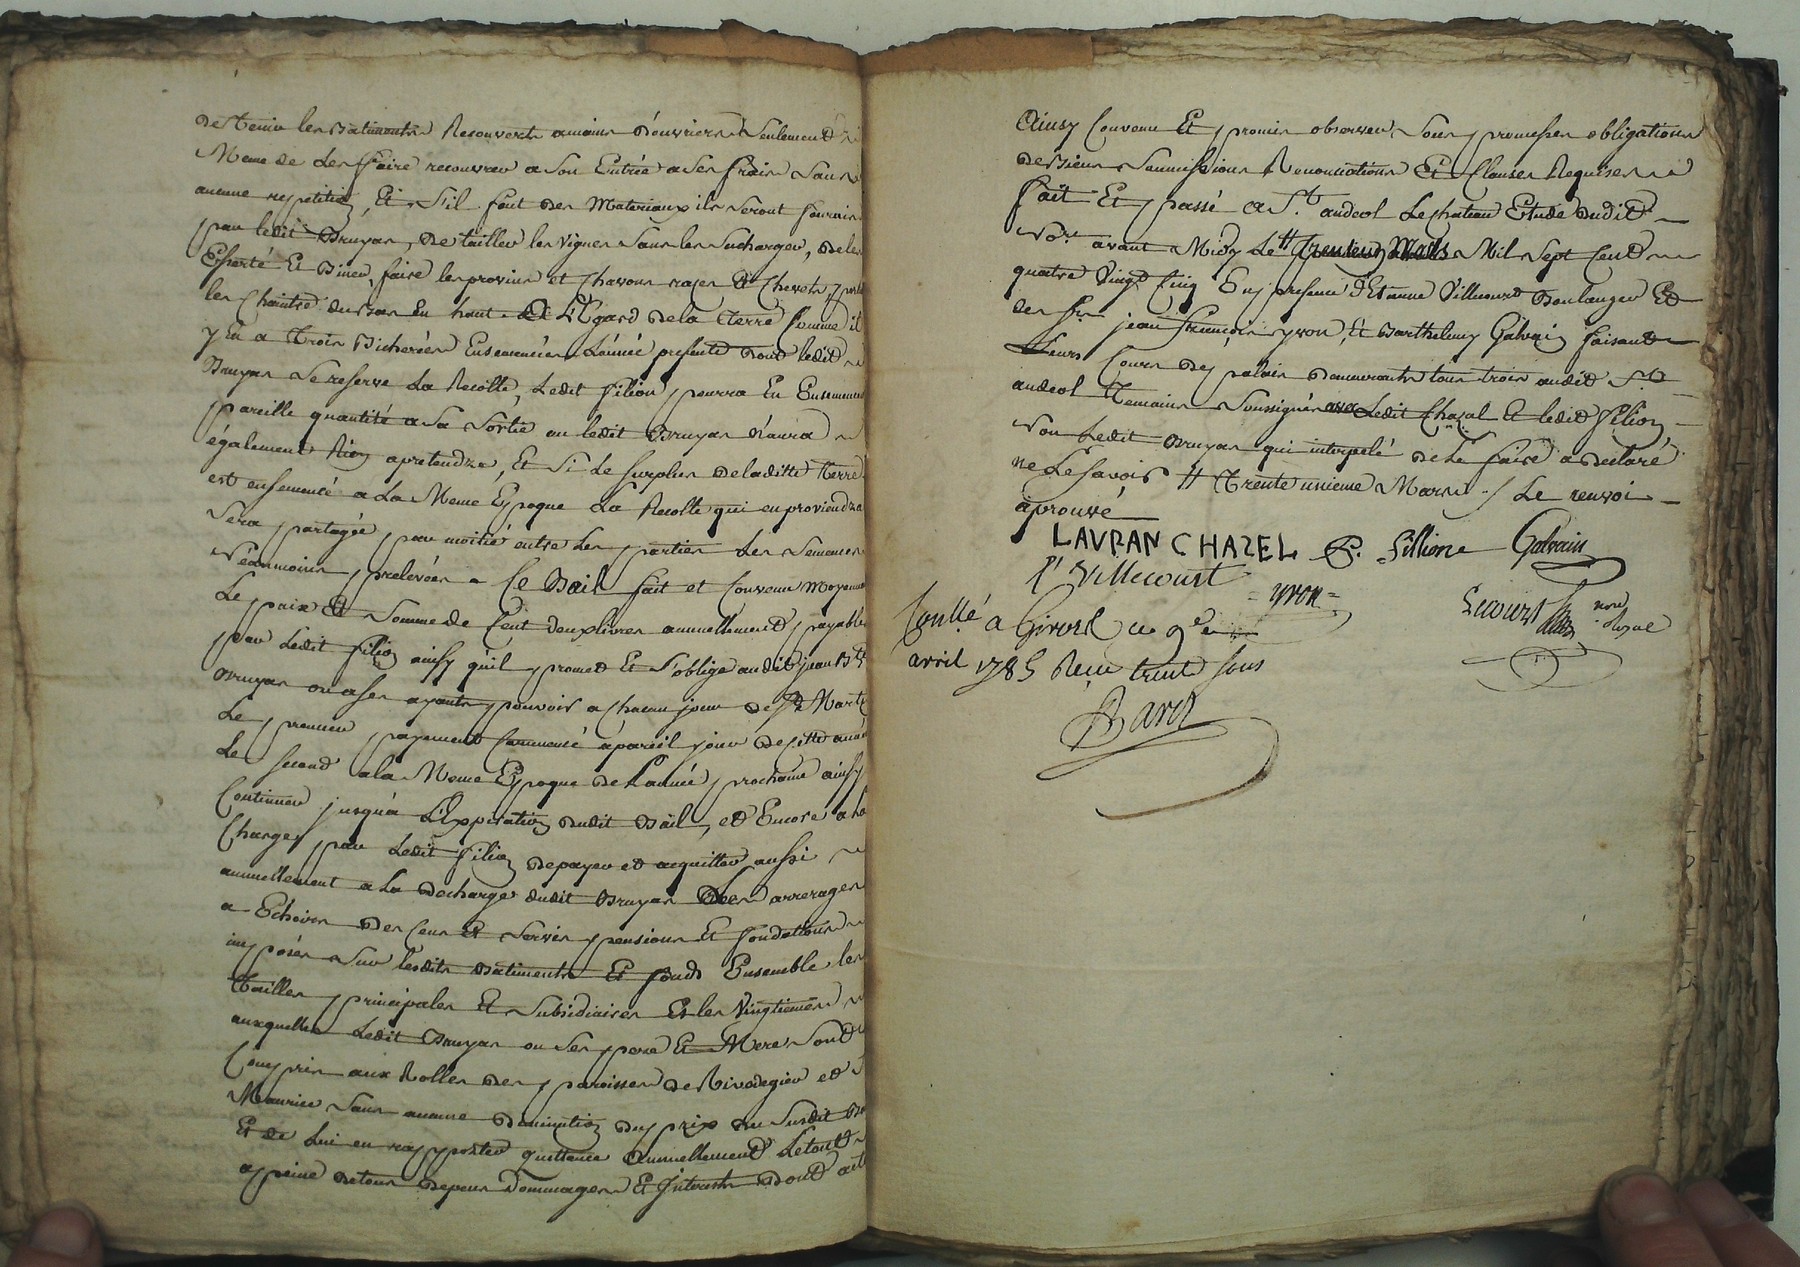 de tenir les Batiments Recouverts a mains d'ouvriers Seulement
Meme de Les ffaire recouvrer a Son Entrée a Ses frais Sans
aucune repetition, Et S'il faut des Materiaux ils Seront fournis
par ledit Bruyas, de tailler les vignes Sans les Surcharger, de les
faire les provins et Chavons rases Et Chevets, porter
les Chaintre du Bas En haut. A L'Egard de la Terre Comme il
y En a Trois Bicherées Ensemencées L'année presente dont ledit
Bruyas Se reserve La Recolte, Ledit filion pourra En Ensemencer
pareille quantité a Sa Sortie ou ledit Bruyas n'aura
également Rien a pretendre, Et Si Le Surplus de laditte Terre
est ensemencé a La Meme Epoque La Recolte qui en proviendra
Sera partagée par moitié entre Les parties Les Semences
Néanmoins prelevées. Ce Bail fait et Convenu Moyennant
Le prix Et Somme de Cent deux livres annuellement payable
par Ledit filion ainsy qu'il promet Et S'oblige audit jean Bte
Bruyas ou a Ses ayants pouvoir a Chacun jour de St Martin
Le premier payement Commencé a pareil jour de Cette année
Le Second a la Meme Epoque de L'année prochaine ainsy
Continuer jusqu'a L'Expiration dudit Bail, et Encore a la
Charge par Ledit filion de payer et acquitter aussi
annuellement a La decharge dudit Bruyas Les arrerages
a Echoir des Cens Et Servis pensions Et fondations
imposés Sur lesdits Batiments Et fonds Ensemble les
Tailles principales Et Subsidiaires Et les Vingtiemes
auxquelles Ledit Bruyas ou Ses pere Et Mere Sont
Compris aux Rolles des paroisses de Rivedegier et St
Maurice Sans aucune Diminution du prix du Susdit Bail
Et de Lui en rapporter quittance Annuellement Le tout
a peine de tous depens Dommages Et Interests Dont acte
Ainsy Convenu Et promis observer Sous promesses obligations
de Biens Soumissions Renonciations Et Clauses Requises
fait Et passé a St. andeol Le chateau Etude dudit
Nore avant Midy Le # Mars Mil Sept Cent
quatre Vingt Cinq En presence d'Etienne Villecourt Boulanger Et
des Srs jean françois yvon, Et Barthelemy Galvain faisant
Leurs Cours de palais Demeurants tous trois audit St.
andeol Temoins Soussignés avec Ledit Chazal Et ledit filion
Non Ledit Bruyas qui interpelé de Le faire a Declaré
ne Le Savoir # Trente unieme Mars / Le renvoi
aprouvé
LAVRAN CHAZEL E. fillion Galvain
Villecourt
= yvon =
Lecourt nore Royal
Conllé a Givors ce 9e
avril 1785 Reçu trente sous
Barol